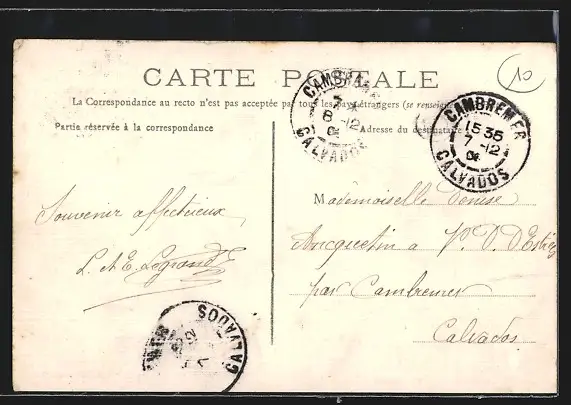 10
CARTE POSTALE
La Correspondance au recto n'est pas acceptée par tous les pays étrangers (se renseigner
Partie réservée à la correspondance
Adresse du destinataire
CAMBREMER
8 -12
CALVADOS
CAMBREMER
15 35
7 -12
CALVADOS
Souvenir affectueux
L. et E. Legrand
Mademoiselle Denise
Ancquetin à V. P. D'Estrées
par Cambremer
Calvados
CALVADOS